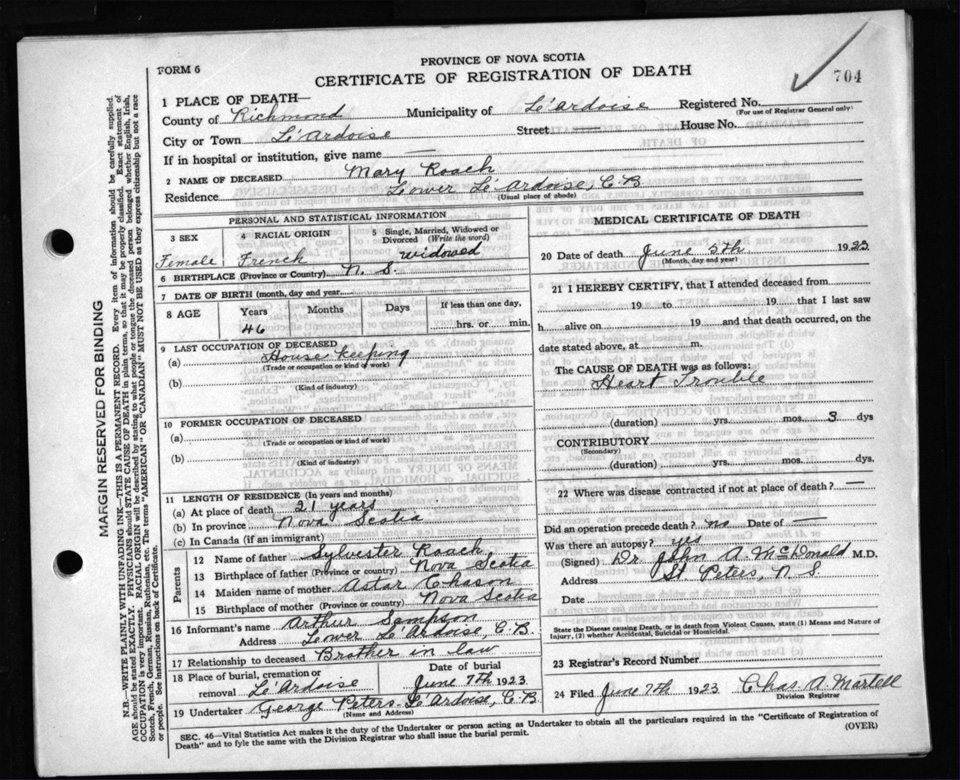 FORM 6
PROVINCE OF NOVA SCOTIA
CERTIFICATE OF REGISTRATION OF DEATH
704
1 PLACE OF DEATH—
County of Richmond Municipality of Le'Ardoise Registered No.
(For use of Registrar General only)
City or Town Le'Ardoise Street House No.
If in hospital or institution, give name —
2 NAME OF DECEASED Mary Roach
Residence Lower Le'Ardoise, C.B.
(Usual place of abode)
PERSONAL AND STATISTICAL INFORMATION
3 SEX Female
4 RACIAL ORIGIN French
5 Single, Married, Widowed or Divorced (Write the word) widowed
6 BIRTHPLACE (Province or Country) N. S.
7 DATE OF BIRTH (month, day and year)
8 AGE Years 46 Months Days If less than one day, hrs. or min.
9 LAST OCCUPATION OF DECEASED
(a) House keeping
(Trade or occupation or kind of work)
(b)
(Kind of industry)
10 FORMER OCCUPATION OF DECEASED
(a)
(Trade or occupation or kind of work)
(b)
(Kind of industry)
11 LENGTH OF RESIDENCE (In years and months)
(a) At place of death 21 years
(b) In province Nova Scotia
(c) In Canada (if an immigrant)
Parents
12 Name of father Sylvester Roach
13 Birthplace of father (Province or country) Nova Scotia
14 Maiden name of mother Astar Chason
15 Birthplace of mother (Province or country) Nova Scotia
16 Informant's name Arthur Sampson
Address Lower Le'Ardoise, C.B.
17 Relationship to deceased Brother in law
18 Place of burial, cremation or removal Le'Ardoise Date of burial June 7th 1923
19 Undertaker George Peters Le'Ardoise, C.B
(Name and Address)
MEDICAL CERTIFICATE OF DEATH
20 Date of death June 5th 1923
(Month, day and year)
21 I HEREBY CERTIFY, that I attended deceased from
19 to 19 that I last saw
h alive on 19 and that death occurred, on the
date stated above, at m.
The CAUSE OF DEATH was as follows:
Heart Trouble
(duration) yrs. mos. 3 dys
CONTRIBUTORY
(Secondary)
(duration) yrs. mos. dys.
22 Where was disease contracted if not at place of death? —
Did an operation precede death? no Date of —
Was there an autopsy? yes
(Signed) Dr John A McDonald M.D.
Address St Peters, N S
Date
State the Disease causing Death, or in death from Violent Causes, state (1) Means and Nature of
Injury, (2) whether Accidental, Suicidal or Homicidal.
23 Registrar's Record Number
24 Filed June 7th 1923 Chas. A. Martell
Division Registrar
SEC. 46—Vital Statistics Act makes it the duty of the Undertaker or person acting as Undertaker to obtain all the particulars required in the "Certificate of Registration of
Death" and to fyle the same with the Division Registrar who shall issue the burial permit.
(OVER)
MARGIN RESERVED FOR BINDING
N.B.—WRITE PLAINLY WITH UNFADING INK—THIS IS A PERMANENT RECORD. Every item of information should be carefully supplied.
AGE should be stated EXACTLY. PHYSICIANS should STATE CAUSE OF DEATH in plain terms, so that it may be properly classified. Exact statement of
OCCUPATION is very important. RACIAL ORIGIN will be described by stating to what people or tongue the deceased person belonged whether English, Irish,
Scotch, French, German, Russian, Ruthenian, etc. The terms "AMERICAN" OR "CANADIAN" MUST NOT BE USED as they express citizenship but not a race
or people. See instructions on back of Certificate.